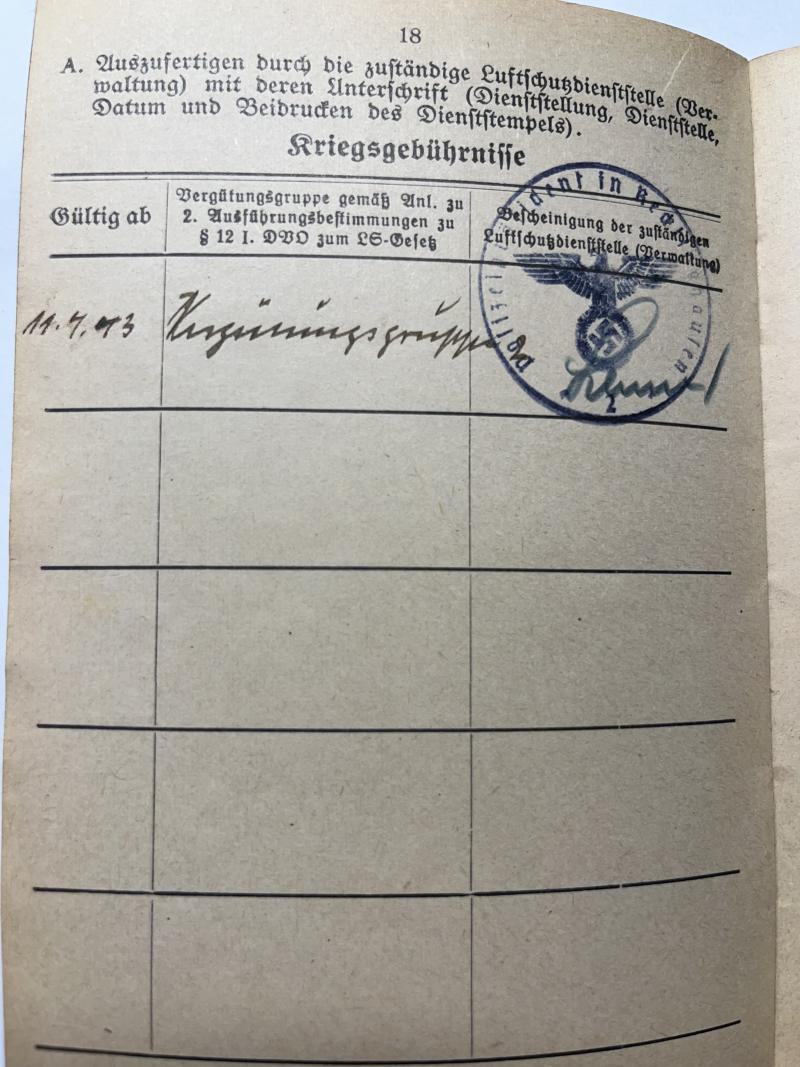 18
A. Auszufertigen durch die zuständige Luftschutzdienststelle (Ver-
waltung) mit deren Unterschrift (Dienststellung, Dienststelle,
Datum und Beidrucken des Dienststempels).
Kriegsgebührnisse
Gültig ab
Vergütungsgruppe gemäß Anl. zu
2. Ausführungsbestimmungen zu
§ 12 I. DVO zum LS-Gesetz
Bescheinigung der zuständigen
Luftschutzdienststelle (Verwaltung)
11.7.43
Vergütungsgruppe
Polizeipräsident in
2